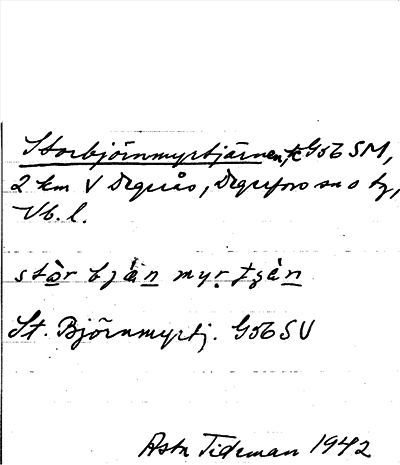 Storbjörnmyrtjärnen, tc G56 SM,
2 km V Degerås, Degerfors sn o by,
Vb. l.
stòr bjàn myr tjàn
St. Björnmyrtj. G56 SV
Asta Tideman 1942